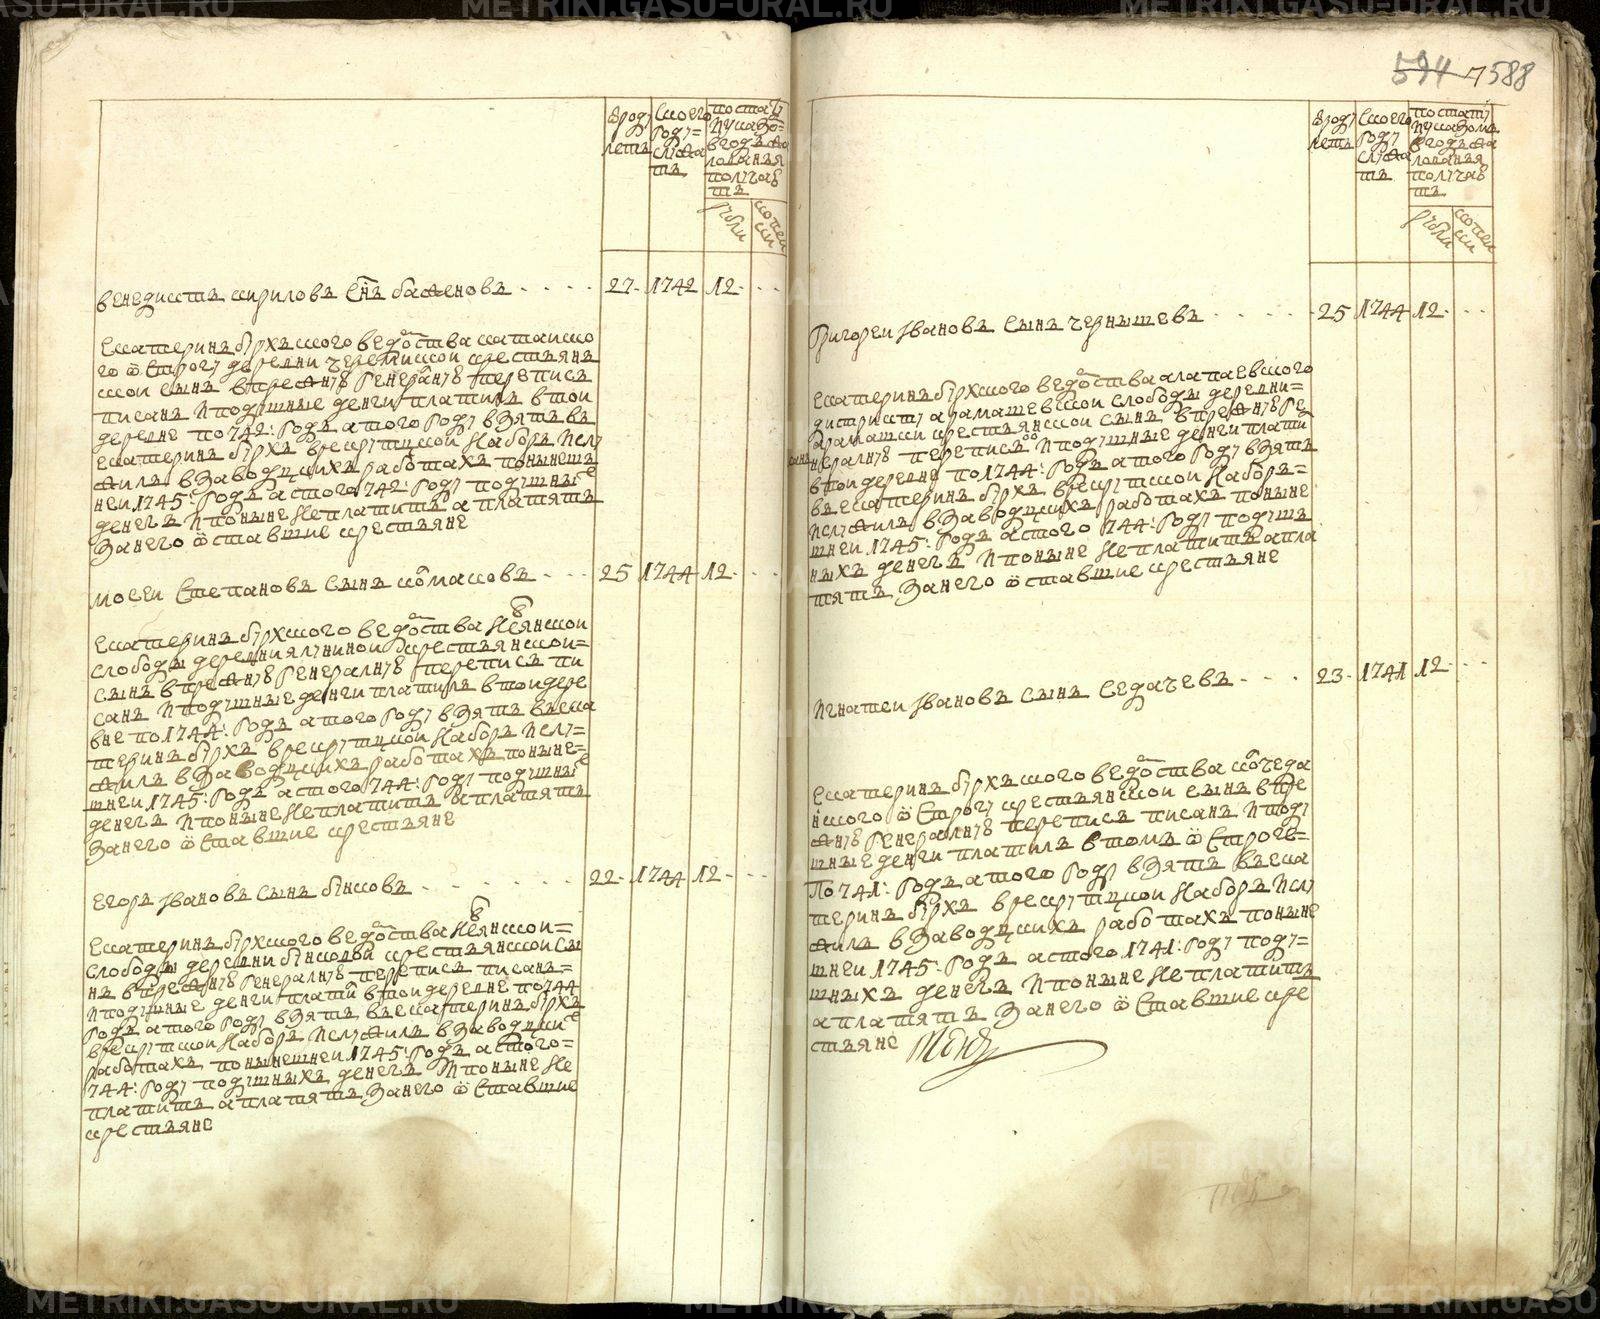 вроду
летъ
Коего
году
служа
тъ
по стату
жалованья
получае
тъ
рубли
копеи
ки
венедиктъ кириловъ снъ баженовъ 27 1742 12
Екатеринъ бурхъ кого ведомства катаиско
го острогу деревни черемискои крестьянъ
скои сынъ впрежнюю генералную переписъ
писанъ и подушные денги платилъ втои
деревне по 742: годъ атого году взятъ въ
екатеринъ бурхъ врекрутцкои наборъ ислу
жилъ взаводцкихъ работахъ понынешъ
неи 1745: годъ астого 742: году подушных
денегъ ипоныне неплатитъ аплатятъ
занего оставшие крестьяне
мосеи степановъ сынъ комаковъ 25 1744 12
екатеринъ бурхкого ведомства невянскои
слободы деревни ялунинои крестьянскои
сынъ впрежнюю генералную переписъ пи
санъ иподушные денги платилъ втои дере
вне по 1744: годъ атого году взятъ векка
теринъ бурхъ врекрутцкои наборъ ислу
жилъ взаводцкихъ работахъ поныне
шнеи 1745: годъ астого 744: году подушных
денегъ ипоныне неплатитъ аплатятъ
занего оставшие крестьяне
Егоръ Ивановъ сынъ буньковъ 22 1744 12
екатеринъ бурхкого ведомства невянскои
слободы деревни крестьянскои сы
нъ впрежнюю генералную переписъ писанъ
иподушные денги платил втои деревне по 744
годъ атого году взятъ векатеринъ бурхъ
врекрутскои наборъ ислужилъ взаводцких
работахъ понынешнеи 1745: годъ астого
744: году подушныхъ денегъ ипоныне не
платитъ аплатятъ занего оставшие
крестьяне
594 588
вроду
летъ
Коего
году
служа
тъ
по стату
жалованья
получае
тъ
рубли
копеи
ки
Григореи Ивановъ сынъ чернышевъ 25 1744 12
екатеринъ бурхского ведомства алапаевского
дистрикту арамашевскои слободы деревни
арамашки крестьянскои сынъ впрежнюю ге
нералную переписъ иподушные денги плати
втои деревне по 1744: годъ атого году взятъ
векатеринъ бурхъ врекрутскои наборъ
ислужилъ взаводцкихъ работахъ поныне
шнеи 1745: годъ астого 744: году подуш
ныхъ денегъ ипоныне неплатитъ апла
тятъ занего оставшие крестьяне
игнатеи Ивановъ сынъ седачевъ 23 1741 12
екатеринъ бурхъ кого ведомства колчеда
нского острогу крестьянскои сынъ впре
жнюю генералную переписъ писанъ иподу
шные денги платилъ втомъ остроге
по 741: годъ атого году взятъ векка
теринъ бурхъ врекрутцкои наборъ ислу
жилъ взаводцкихъ работахъ поныне
шнеи 1745: годъ астого 1741: году поду
шныхъ денегъ ипоныне неплатитъ
аплатятъ занего оставшие кре
стьяне
METRIKI.GASU-URAL.RU